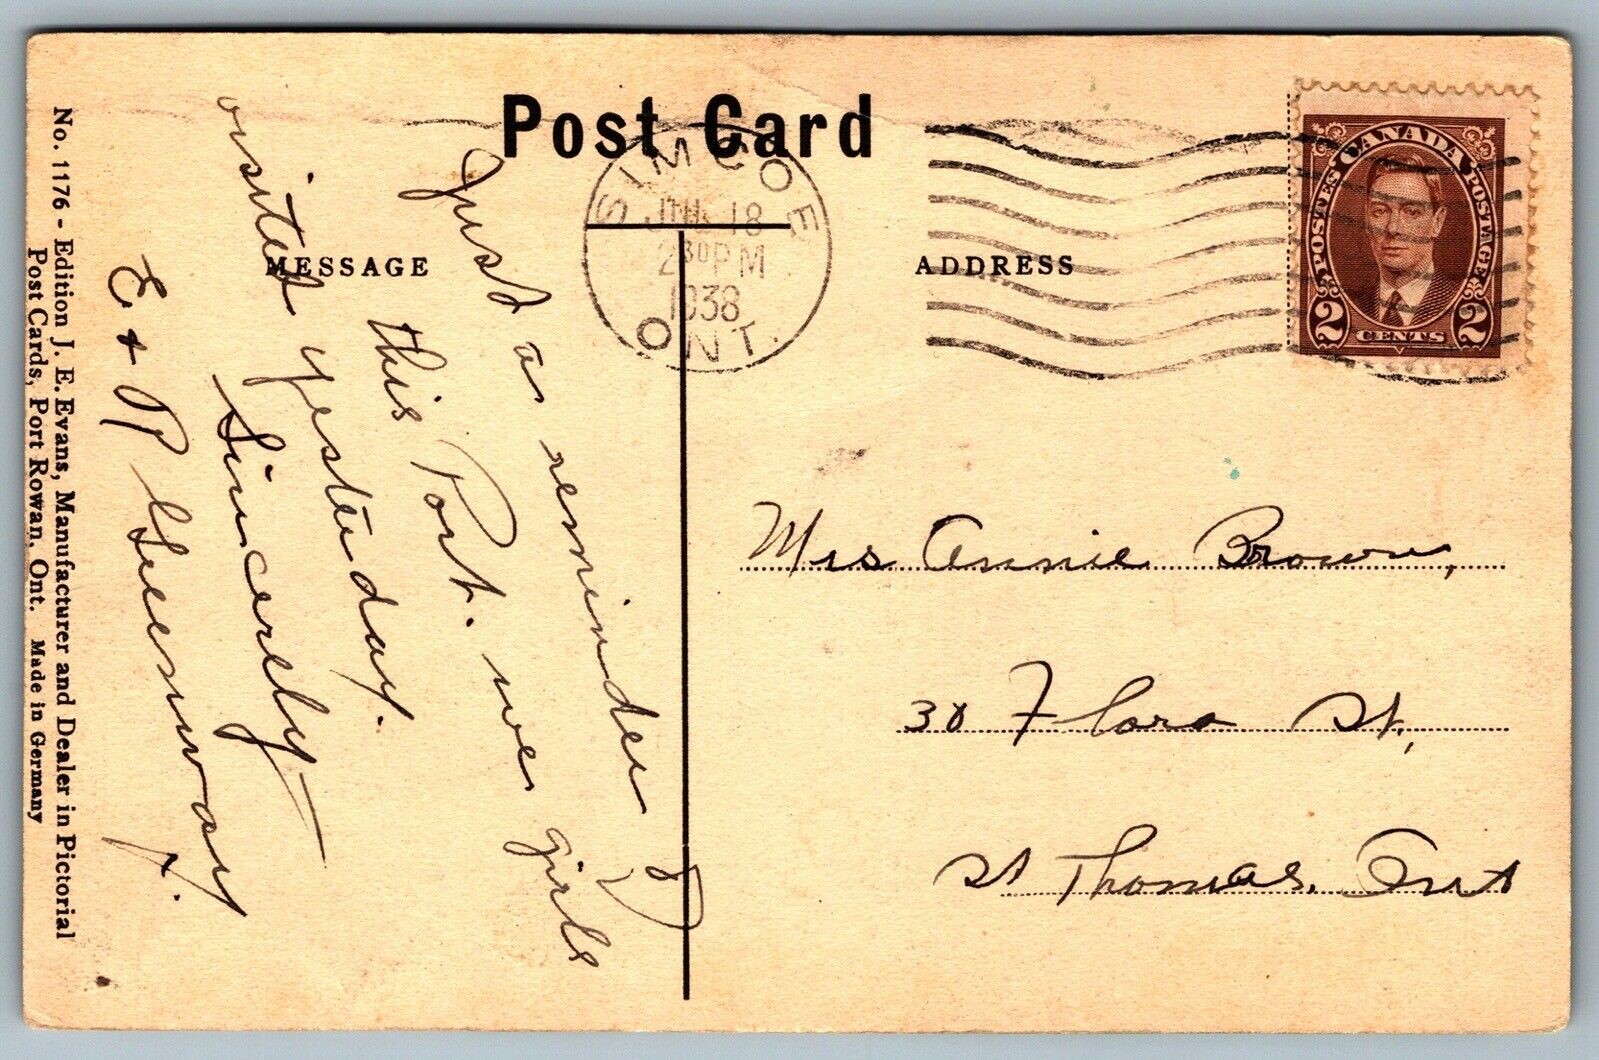 Post Card
SIMCOE
18
2 30 PM
1938
ONT.
CANADA
POSTES POSTAGE
2 CENTS 2
MESSAGE
ADDRESS
Just as reminder of
this Port. we girls
visited yesterday.
Sincerely
E & P Greenway.
Mrs Annie Brown,
38 Flora St,
St Thomas, Ont
No. 1176 - Edition J. E. Evans, Manufacturer and Dealer in Pictorial
Post Cards, Port Rowan, Ont. Made in Germany